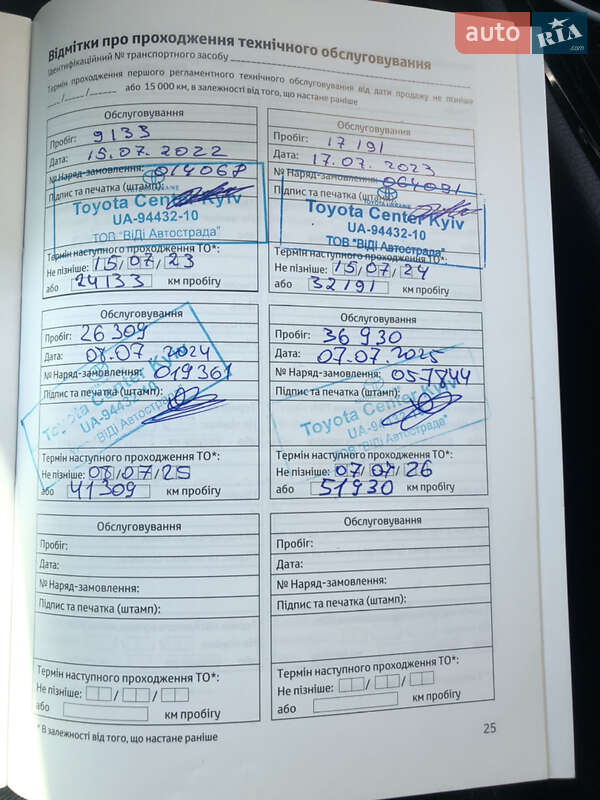 auto RIA .com
Відмітки про проходження технічного обслуговування
Ідентифікаційний № транспортного засобу
Термін проходження першого регламентного технічного обслуговування від дати продажу не пізніше
__/__/__ або 15 000 км, в залежності від того, що настане раніше
Обслуговування
Пробіг: 9133
Дата: 15.07.2022
№ Наряд-замовлення: 014067
Підпис та печатка (штамп):
TOYOTA UKRAINE
Toyota Center Kyiv
UA-94432-10
ТОВ "ВіДі Автострада"
Термін наступного проходження ТО*:
Не пізніше: 15/07/23
або 24133 км пробігу
Обслуговування
Пробіг: 17191
Дата: 17.07.2023
№ Наряд-замовлення: 064091
Підпис та печатка (штамп):
TOYOTA UKRAINE
Toyota Center Kyiv
UA-94432-10
ТОВ "ВіДі Автострада"
Термін наступного проходження ТО*:
Не пізніше: 15/07/24
або 32191 км пробігу
Обслуговування
Пробіг: 26309
Дата: 08.07.2024
№ Наряд-замовлення: 019361
Підпис та печатка (штамп):
Toyota Center Kyiv
UA-94432-10
ТОВ "ВіДі Автострада"
Термін наступного проходження ТО*:
Не пізніше: 08/07/25
або 41309 км пробігу
Обслуговування
Пробіг: 36930
Дата: 07.07.2025
№ Наряд-замовлення: 057844
Підпис та печатка (штамп):
Toyota Center Kyiv
UA-94432-10
ТОВ "ВіДі Автострада"
Термін наступного проходження ТО*:
Не пізніше: 07/07/26
або 51930 км пробігу
Обслуговування
Пробіг:
Дата:
№ Наряд-замовлення:
Підпис та печатка (штамп):
Термін наступного проходження ТО*:
Не пізніше: / /
або км пробігу
Обслуговування
Пробіг:
Дата:
№ Наряд-замовлення:
Підпис та печатка (штамп):
Термін наступного проходження ТО*:
Не пізніше: / /
або км пробігу
* В залежності від того, що настане раніше
25